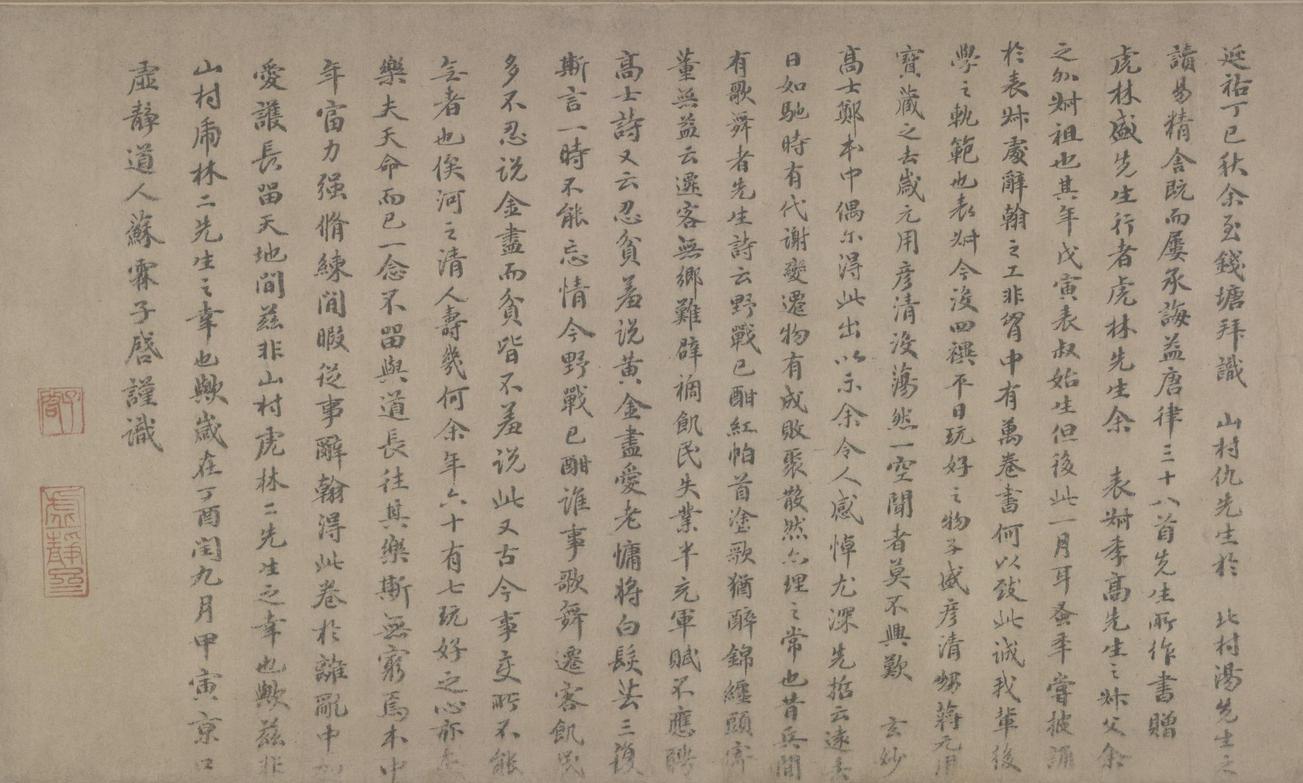 延祐丁巳秋余至錢塘拜識 山村仇先生於 北村湯先生之
讀易精舍既而屢承誨益唐律三十八首先生所作書贈
虎林盛先生行者虎林先生余 表叔季高先生之叔父余
之外叔祖也其年戊寅表叔始生但後此一月耳蚤年嘗披誦
於表叔處辭翰之工非胷中有萬卷書何以致此誠我輩後
學之軌範也表叔今沒四禩平日玩好之物子盛彦清甥蔣元用
寶藏之去歲元用彦清沒蕩然一空聞者莫不興歎 玄妙
高士鄭本中偶尔得此出以示余令人感悼尤深先哲云逮
日如馳時有代謝變遷物有成敗聚散然亦理之常也昔兵間
有歌舞者先生詩云野戰已酣紅帕首塗歌猶醉錦纏頭寄
董無益云遷客無鄉難辟禍飢民失業半充軍賦不應聘
高士詩又云忍貧羞說黃金盡愛老慵將白髮盐三復
斯言一時不能忘情今野戰已酣誰事歌舞遷客飢民
多不忍說金盡而貧皆不羞說此又古今事変所不能
免者也俟河之清人壽幾何余年六十有七玩好之心亦
樂夫天命而已一念不留與道長往其樂斯無窮焉本中
年富力强脩練間暇從事辭翰得此卷於離亂中
愛護長留天地間茲非山村虎林二先生之幸也歟茲非
山村虎林二先生之幸也歟歲在丁酉閏九月甲寅京口
虛靜道人蘇霖子啓謹識
子啓
虛靜